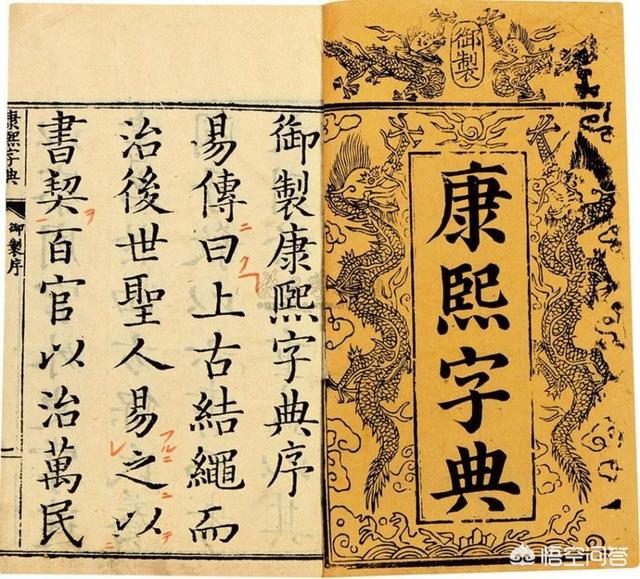 御製
康熙字典
御製康熙字典序
易傳曰上古結繩而
治後世聖人易之以
書契百官以治萬民
康熙字典
御製序
一
悟空问答